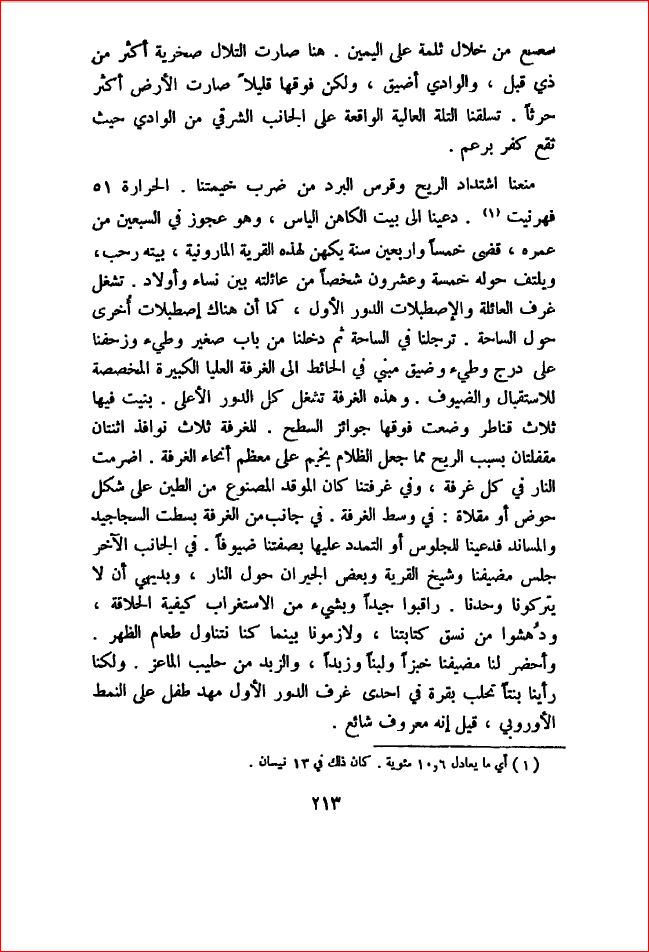 سعسع من خلال ثلمة على اليمين . هنا صارت التلال صخرية أكثر من
ذي قبل ، والوادي أضيق ، ولكن فوقها قليلاً صارت الأرض أكثر
حرثاً . تسلقنا التلة العالية الواقعة على الجانب الشرقي من الوادي حيث
تقع كفر برعم .
منعنا اشتداد الريح وقرس البرد من ضرب خيمتنا . الحرارة ٥١
فهرنيت (١) . دعينا الى بيت الكاهن الياس ، وهو عجوز في السبعين من
عمره ، قضى خمساً واربعين سنة يكهن لهذه القرية المارونية ، بيته رحب،
ويلتف حوله خمسة وعشرون شخصاً من عائلته بين نساء وأولاد . تشغل
غرف العائلة والإصطبلات الدور الأول ، كما أن هناك إصطبلات أُخرى
حول الساحة . ترجلنا في الساحة ثم دخلنا من باب صغير وطيء وزحفنا
على درج وطيء وضيق مبني في الحائط الى الغرفة العليا الكبيرة المخصصة
للاستقبال والضيوف . وهذه الغرفة تشغل كل الدور الأعلى . بنيت فيها
ثلاث قناطر وضعت فوقها جوائز السطح . للغرفة ثلاث نوافذ اثنتان
مقفلتان بسبب الريح مما جعل الظلام يخيم على معظم أنحاء الغرفة . اضرمت
النار في كل غرفة ، وفي غرفتنا كان الموقد المصنوع من الطين على شكل
حوض أو مقلاة : في وسط الغرفة . في جانب من الغرفة بسطت السجاجيد
والمساند فدعينا للجلوس أو التمدد عليها بصفتنا ضيوفاً . في الجانب الآخر
جلس مضيفنا وشيخ القرية وبعض الجيران حول النار ، وبديهي أن لا
يتركونا وحدنا . راقبوا جيداً وبشيء من الاستغراب كيفية الحلاقة ،
ودُهشوا من نسق كتابتنا ، ولازمونا بينما كنا نتناول طعام الظهر .
وأحضر لنا مضيفنا خبزاً ولبناً وزبداً ، والزبد من حليب الماعز . ولكنا
رأينا بنتاً تحلب بقرة في احدى غرف الدور الأول مهد طفل على النمط
الأوروبي ، قيل إنه معروف شائع .
(١) أي ما يعادل ١٠٫٦ مئوية . كان ذلك في ١٣ نيسان .
٢١٣